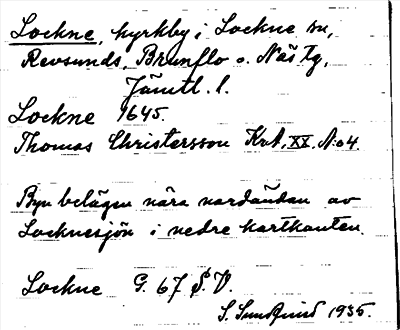 Lockne, kyrkby i Lockne sn,
Revsunds, Brunflo o. Näs tg,
Jämtl. l.
Lockne 1645.
Thomas Christersson Krt, XX. N:o 4.
Byn belägen nära nordändan av
Locknesjön i nedre kartkanten.
Lockne G. 67 S. V.
S. Sundquist 1935.